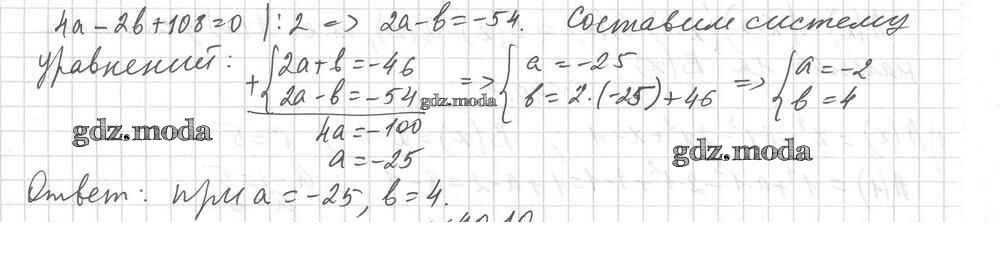 4a - 2b + 108 = 0 |:2 => 2a - b = -54. Составим систему
уравнений: + { 2a + b = -46 => { a = -25 => { a = -2
2a - b = -54 gdz.moda b = 2·(-25) + 46 b = 4
gdz.moda 4a = -100 gdz.moda
a = -25
Ответ: при a = -25, b = 4.